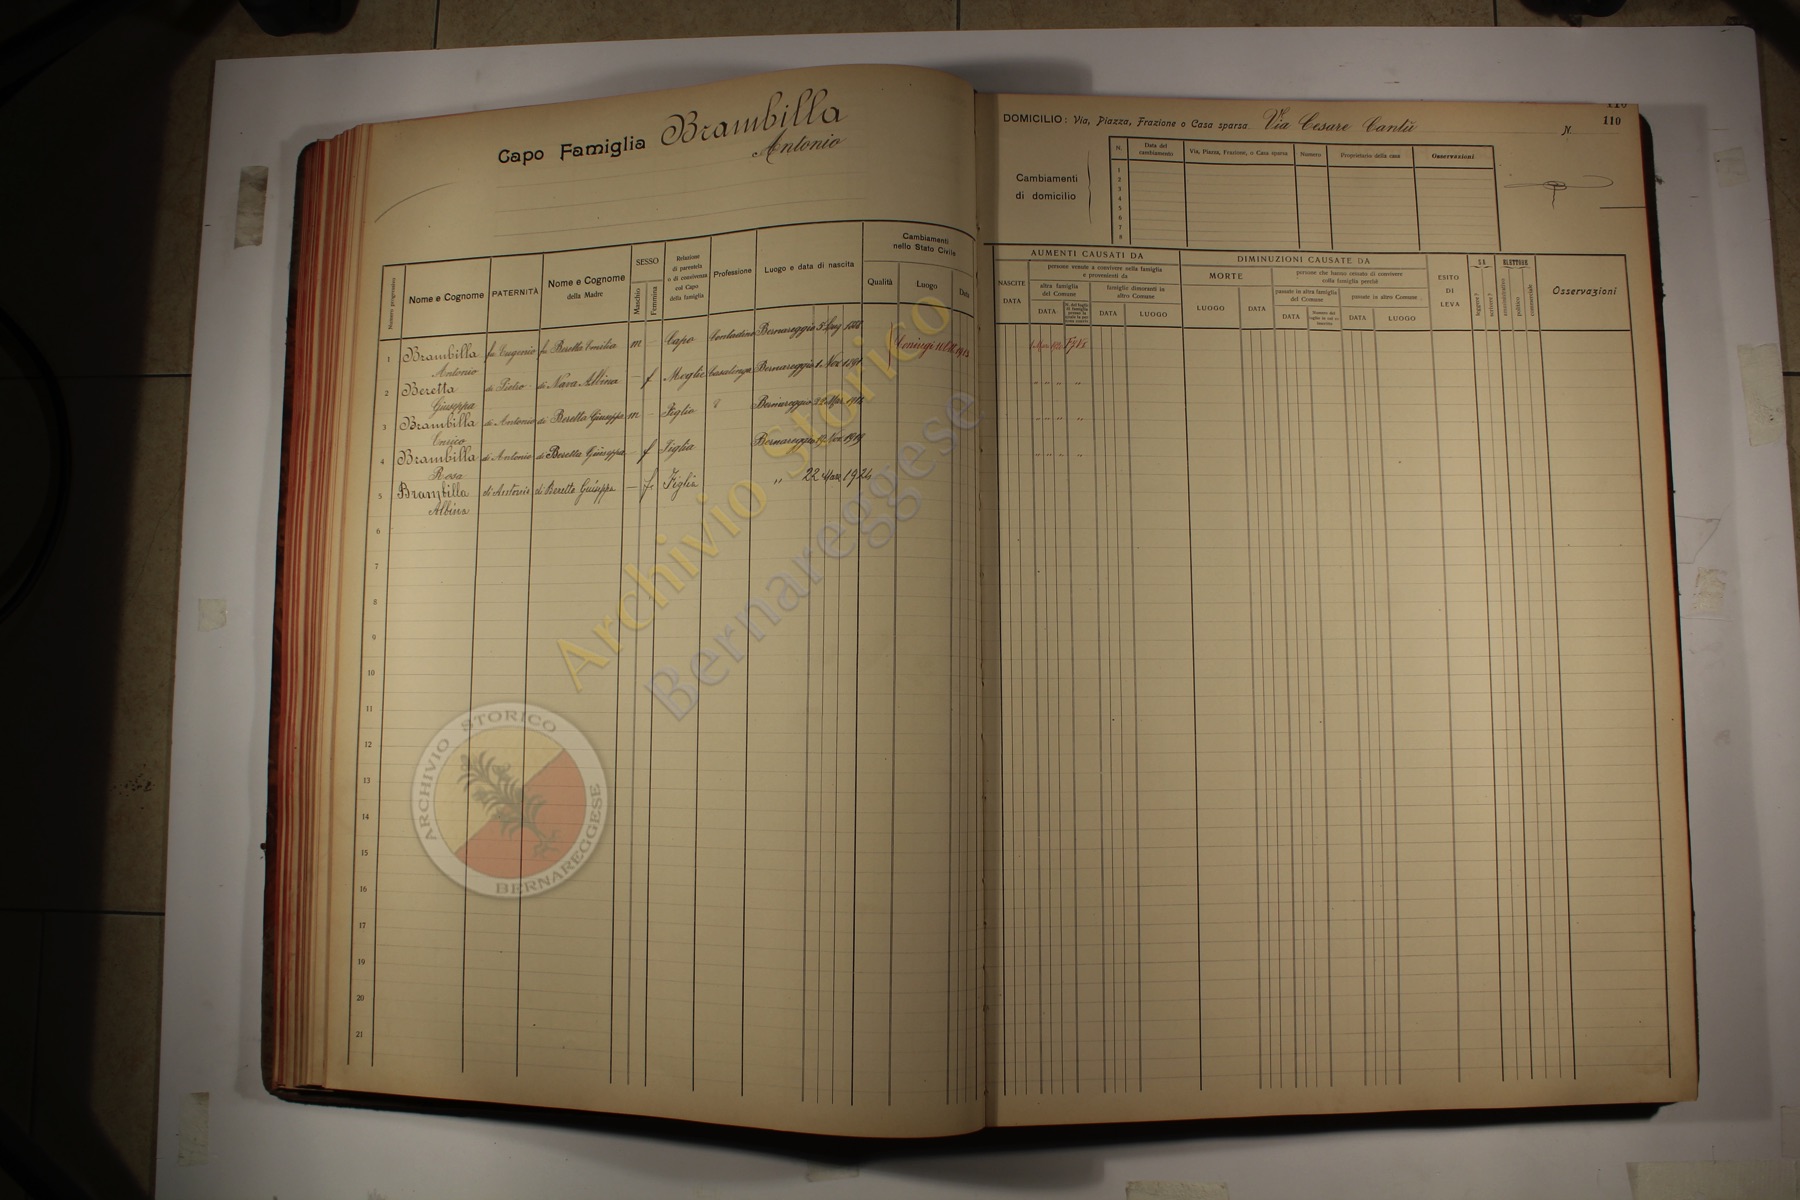 Capo Famiglia Brambilla
Antonio
Numero progressivo
Nome e Cognome
PATERNITÀ
Nome e Cognome
della Madre
SESSO
Maschio
Femmina
Relazione
di parentela
o di convivenza
col Capo
della famiglia
Professione
Luogo e data di nascita
Cambiamenti
nello Stato Civile
Qualità
Luogo
Data
1 Brambilla fu Eugenio fu Beretta Emilia m Capo Contadino Bernareggio
Antonio
2 Beretta di Nava Albina — f Moglie Casalinga Bernareggio 1 Nov 1891
Giuseppa
3 Brambilla di Antonio di Beretta Giuseppa m — Figlio Bernareggio
Enrico
4 Brambilla di Antonio di Beretta Giuseppa — f Figlia Bernareggio
Rosa
5 Brambilla di Antonio di Beretta Giuseppa — f Figlia „ 22 Marz. 1924
Albina
6
7
8
9
10
11
12
13
14
15
16
17
18
19
20
21
110
110
DOMICILIO: Via, Piazza, Frazione o Casa sparsa Via Cesare Cantù N.
Cambiamenti
di domicilio
N.
Data del
cambiamento
Via, Piazza, Frazione, o Casa sparsa
Numero
Proprietario della casa
Osservazioni
1
2
3
4
5
6
7
8
AUMENTI CAUSATI DA
NASCITE
DATA
persone venute a convivere nella famiglia
e provenienti da
altra famiglia
del Comune
DATA
famiglie dimoranti in
altro Comune
DATA
LUOGO
DIMINUZIONI CAUSATE DA
MORTE
LUOGO
DATA
persone che hanno cessato di convivere
colla famiglia perchè
passate in altra famiglia
del Comune
DATA
passate in altro Comune
DATA
LUOGO
ESITO
DI
LEVA
SA
leggere?
scrivere?
ELETTORE
amministrativo
politico
commerciale
Osservazioni
Archivio Storico
Bernareggese
ARCHIVIO STORICO
BERNAREGGESE